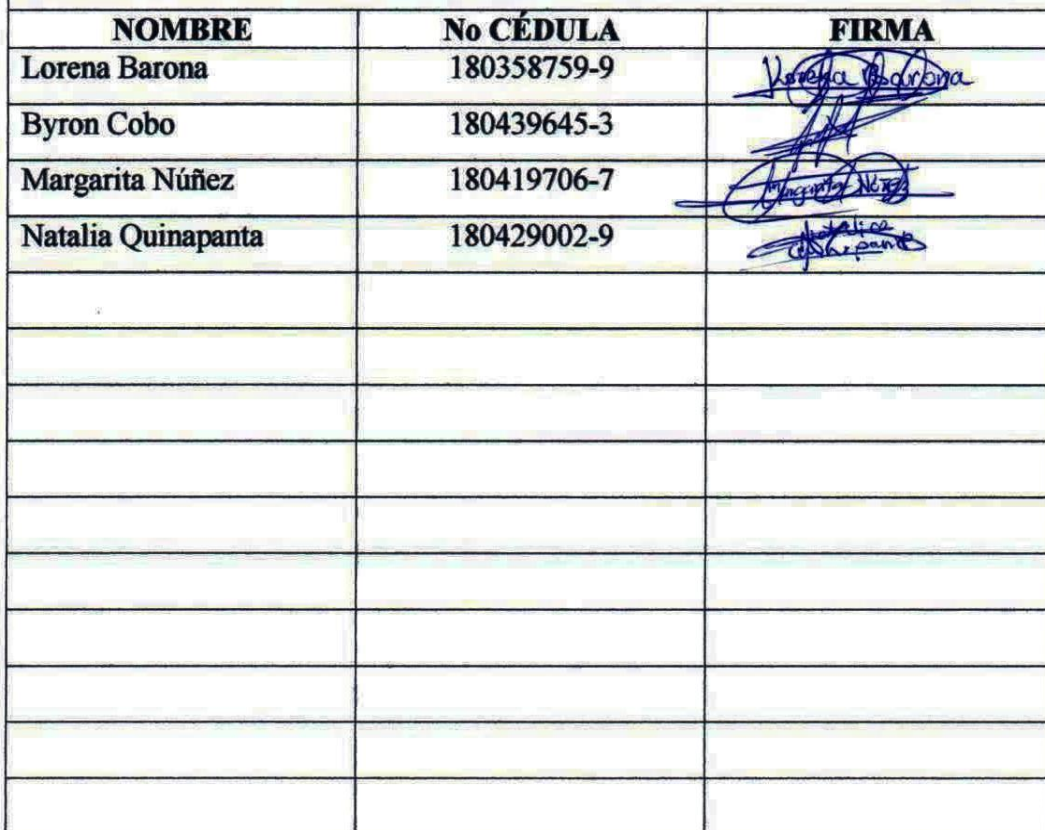 NOMBRE No CÉDULA FIRMA
Lorena Barona 180358759-9 Lorena Barona
Byron Cobo 180439645-3
Margarita Núñez 180419706-7 Margarita Núñez
Natalia Quinapanta 180429002-9 Natalia
Quinapanta